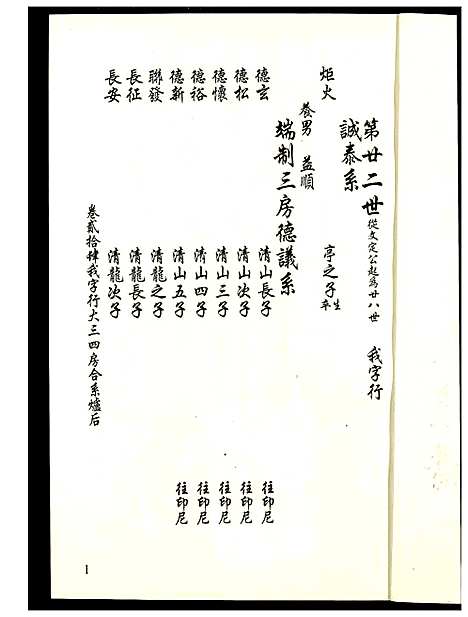 第廿二世 從文定公起為廿八世 我字行
誠泰系
炬火 亭之子 生 卒
養男 益順
端制三房德議系
德玄 清山長子 往印尼
德松 清山次子 往印尼
德懷 清山三子 往印尼
德裕 清山四子 往印尼
德新 清山五子 往印尼
聯發 清龍之子
長征 清龍長子
長安 清龍次子
卷貳拾肆我字行大三四房合系爐后
1